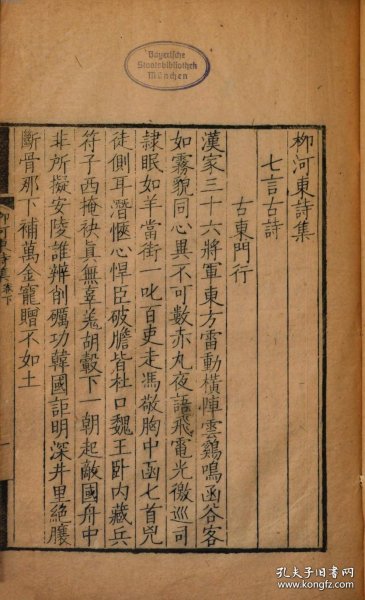 Bayerische
Staatsbibliothek
München
柳河東詩集
七言古詩
古東門行
漢家三十六將軍東方雷動橫陣雲鷄鳴函谷客
如霧貌同心異不可數赤丸夜語飛電光徼巡司
隸眠如羊當街一叱百吏走馮敬胸中函七首兇
徒側耳潛愜心悍臣破膽皆杜口魏王臥內藏兵
符子西掩袂眞無辜羗胡轂下一朝起敵國舟中
非所擬安陵誰辨削礪功韓國詎明深井里絕臏
斷骨那下補萬金寵贈不如土
柳河東詩集卷下
孔夫子旧书网
www.kongfz.com